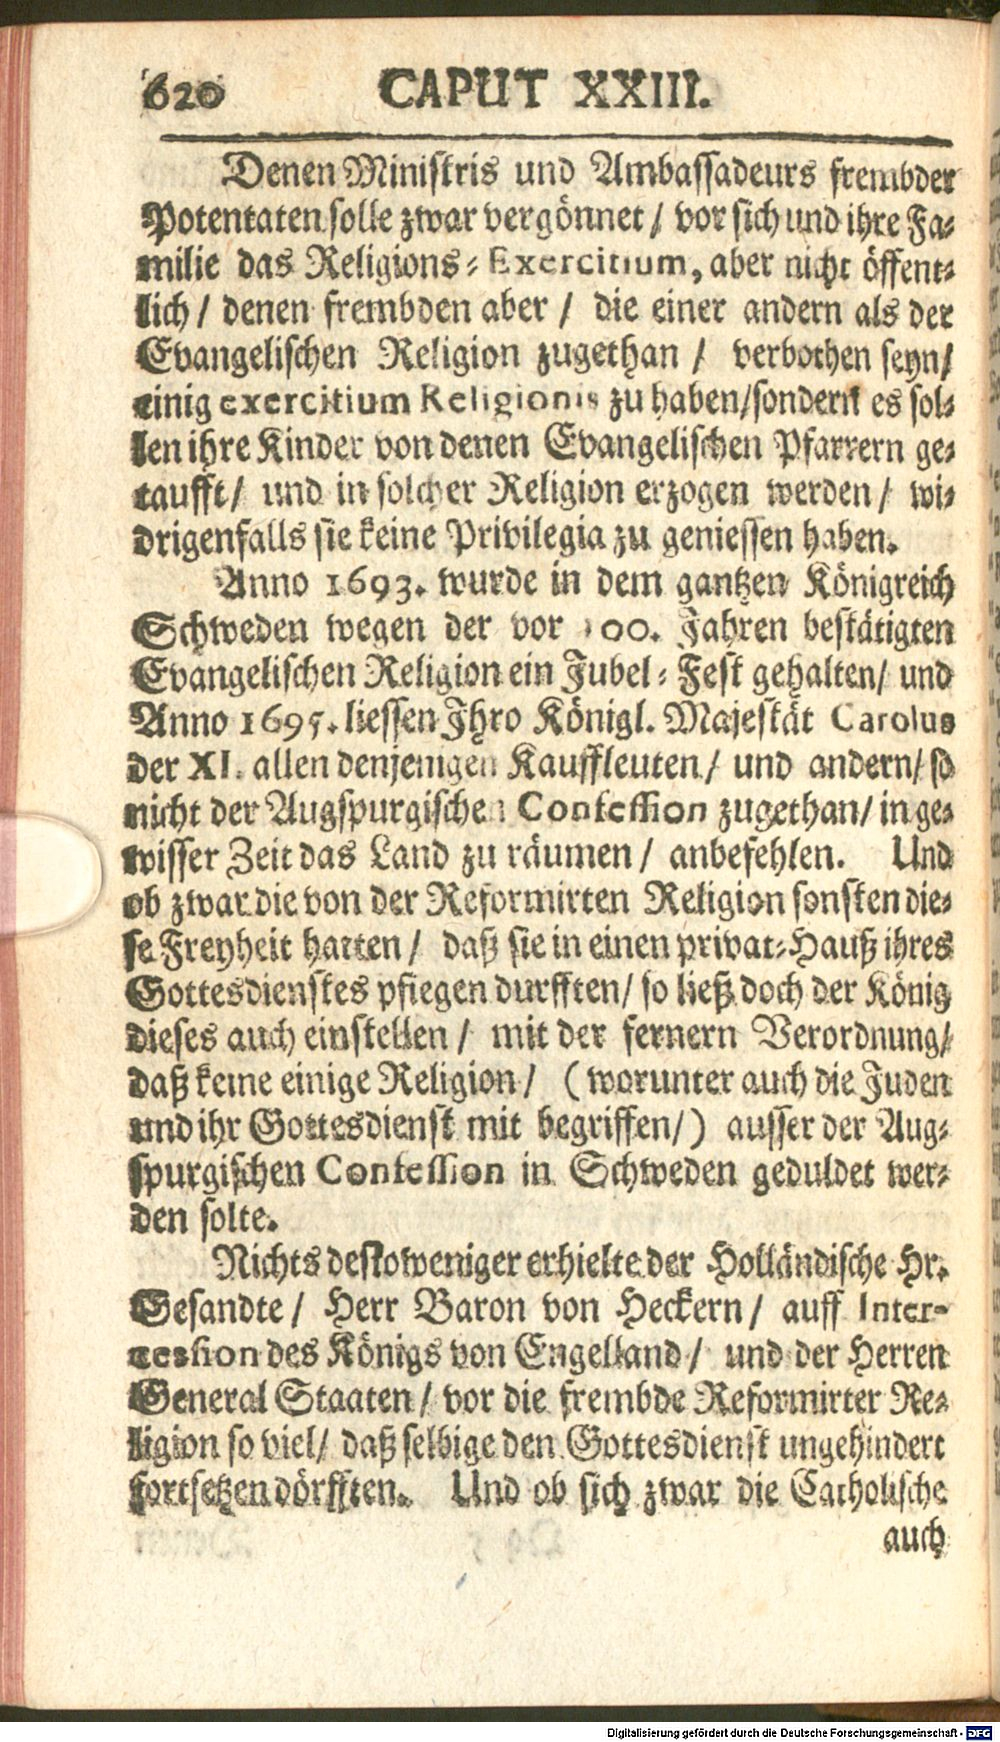 620 CAPUT XXIII.
Denen Ministris und Ambassadeurs frembder
Potentaten solle zwar vergönnet / vor sich und ihre Fa-
milie das Religions-Exercitium, aber nicht öffent-
lich / denen frembden aber / die einer andern als der
Evangelischen Religion zugethan / verbothen seyn/
einig exercitium Religionis zu haben/sondern es sol-
len ihre Kinder von denen Evangelischen Pfarrern ge-
taufft/ und in solcher Religion erzogen werden/ wi-
drigenfalls sie keine Privilegia zu geniessen haben.
Anno 1693. wurde in dem gantzen Königreich
Schweden wegen der vor 100. Jahren bestätigten
Evangelischen Religion ein Jubel-Fest gehalten/ und
Anno 1695. liessen Ihro Königl. Majestät Carolus
der XI. allen denjenigen Kauffleuten/ und andern/ so
nicht der Augspurgischen Confession zugethan/ in ge-
wisser Zeit das Land zu räumen/ anbefehlen. Und
ob zwar die von der Reformirten Religion sonsten die-
se Freyheit hatten/ daß sie in einen privat-Hauß ihres
Gottesdienstes pflegen durfften/ so ließ doch der König
dieses auch einstellen/ mit der fernern Verordnung/
daß keine einige Religion/ (worunter auch die Juden
und ihr Gottesdienst mit begriffen/) ausser der Aug-
spurgischen Confession in Schweden geduldet wer-
den solte.
Nichts destoweniger erhielte der Holländische Hr.
Gesandte/ Herr Baron von Heckern/ auff Inter-
cession des Königs von Engelland/ und der Herren
General Staaten/ vor die frembde Reformirter Re-
ligion so viel/ daß selbige den Gottesdienst ungehindert
fortsetzen dörfften. Und ob sich zwar die Catholische
auch
Digitalisierung gefördert durch die Deutsche Forschungsgemeinschaft - DFG